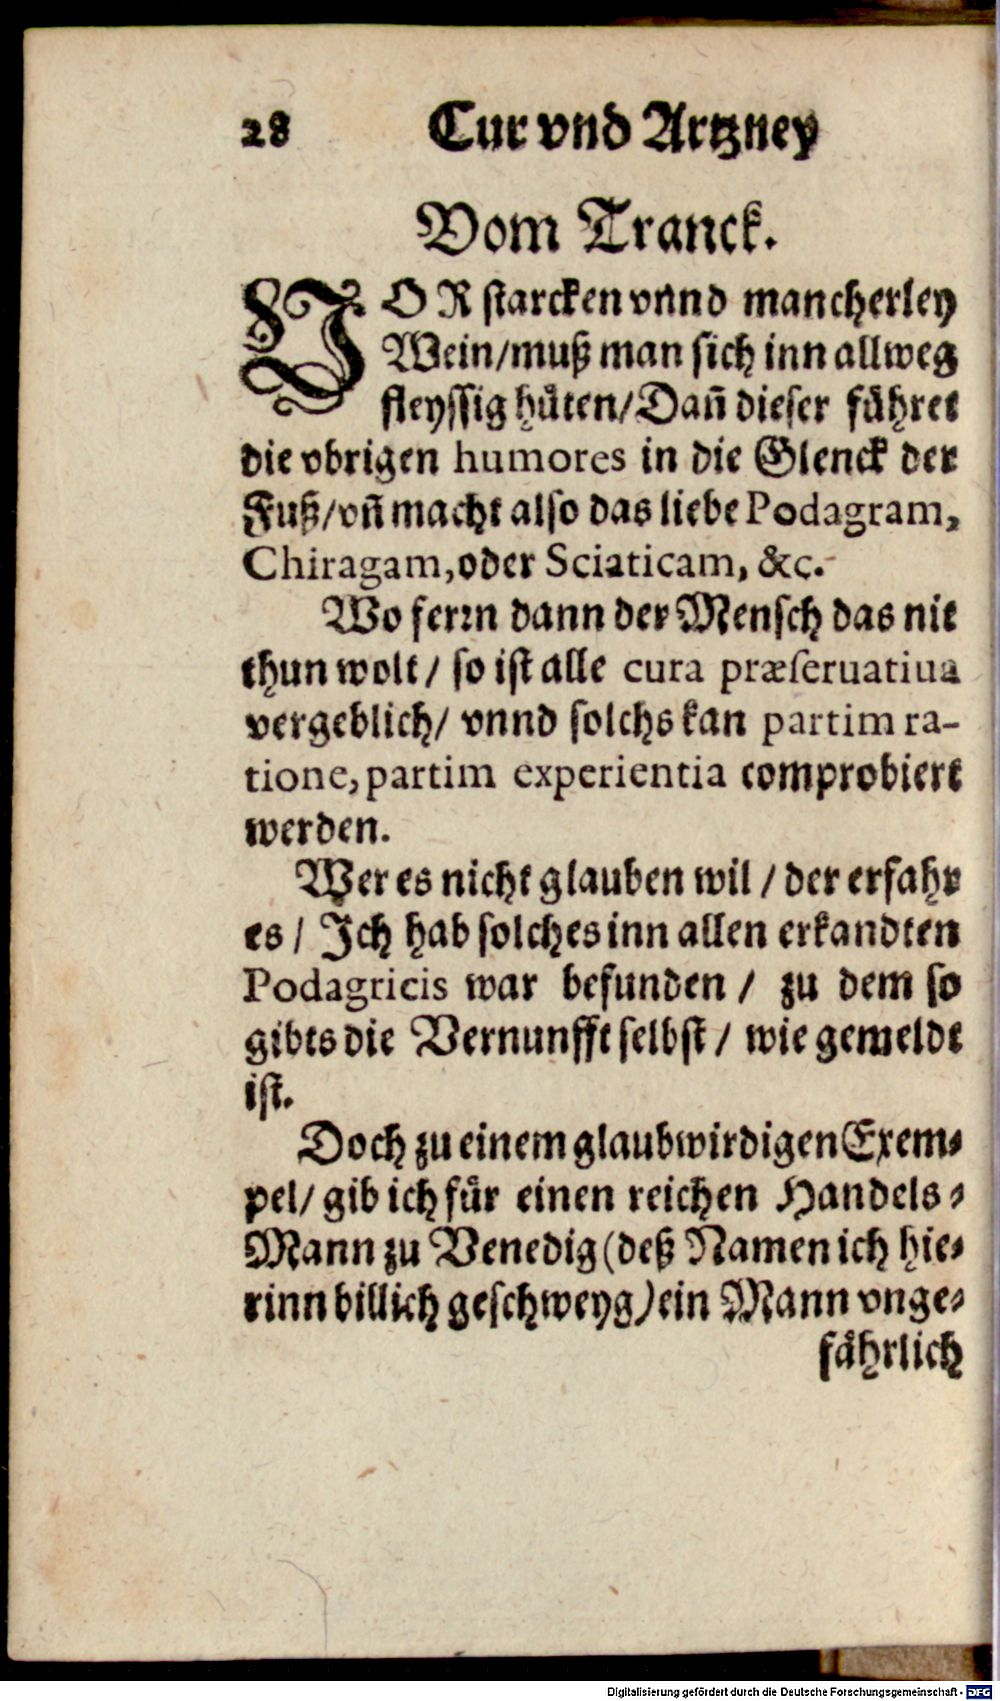 28 Cur vnd Artzney
Vom Tranck.
VOR starcken vnnd mancherley
Wein/muß man sich inn allweg
fleyssig hůten/Dañ dieser fůhret
die vbrigen humores in die Glenck der
Fuß/vñ macht also das liebe Podagram,
Chiragam, oder Sciaticam, &c.
Wo ferrn dann der Mensch das nit
thun wolt/ so ist alle cura præseruatiua
vergeblich/ vnnd solchs kan partim ra-
tione, partim experientia comprobiert
werden.
Wer es nicht glauben wil / der erfahr
es / Ich hab solches inn allen erkandten
Podagricis war befunden / zu dem so
gibts die Vernunfft selbst / wie gemeldt
ist.
Doch zu einem glaubwirdigen Exem-
pel/ gib ich fůr einen reichen Handels-
Mann zu Venedig (deß Namen ich hie-
rinn billich geschweyg) ein Mann vnge-
fåhrlich
Digitalisierung gefördert durch die Deutsche Forschungsgemeinschaft - DFG